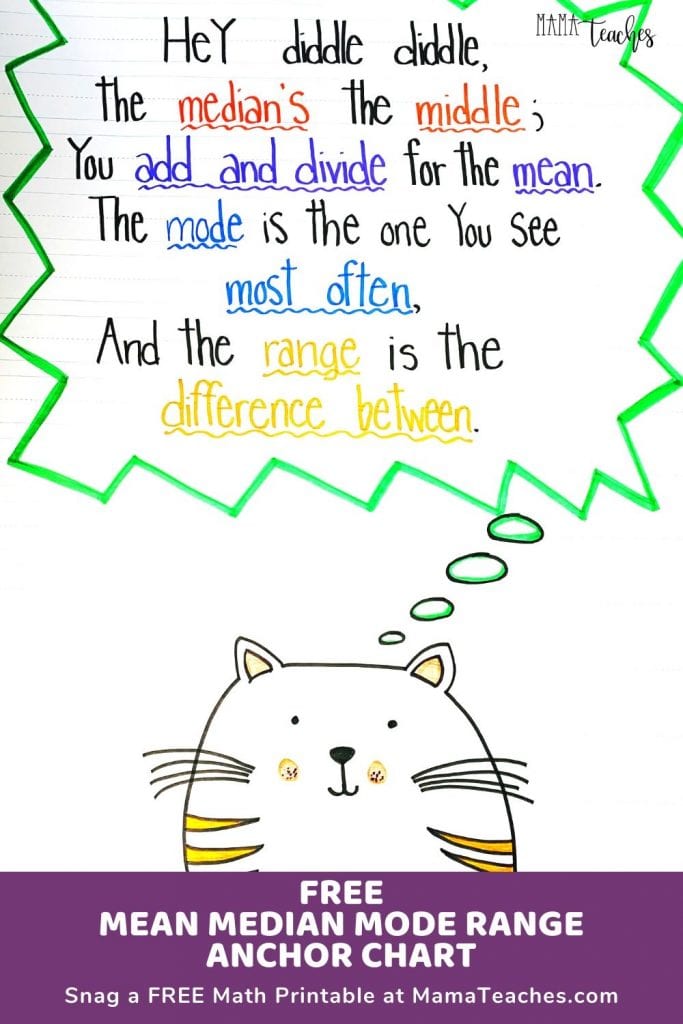 MAMA Teaches
HeY diddle diddle,
the median's the middle;
You add and divide for the mean.
The mode is the one You see
most often,
And the range is the
difference between.
FREE
MEAN MEDIAN MODE RANGE
ANCHOR CHART
Snag a FREE Math Printable at MamaTeaches.com